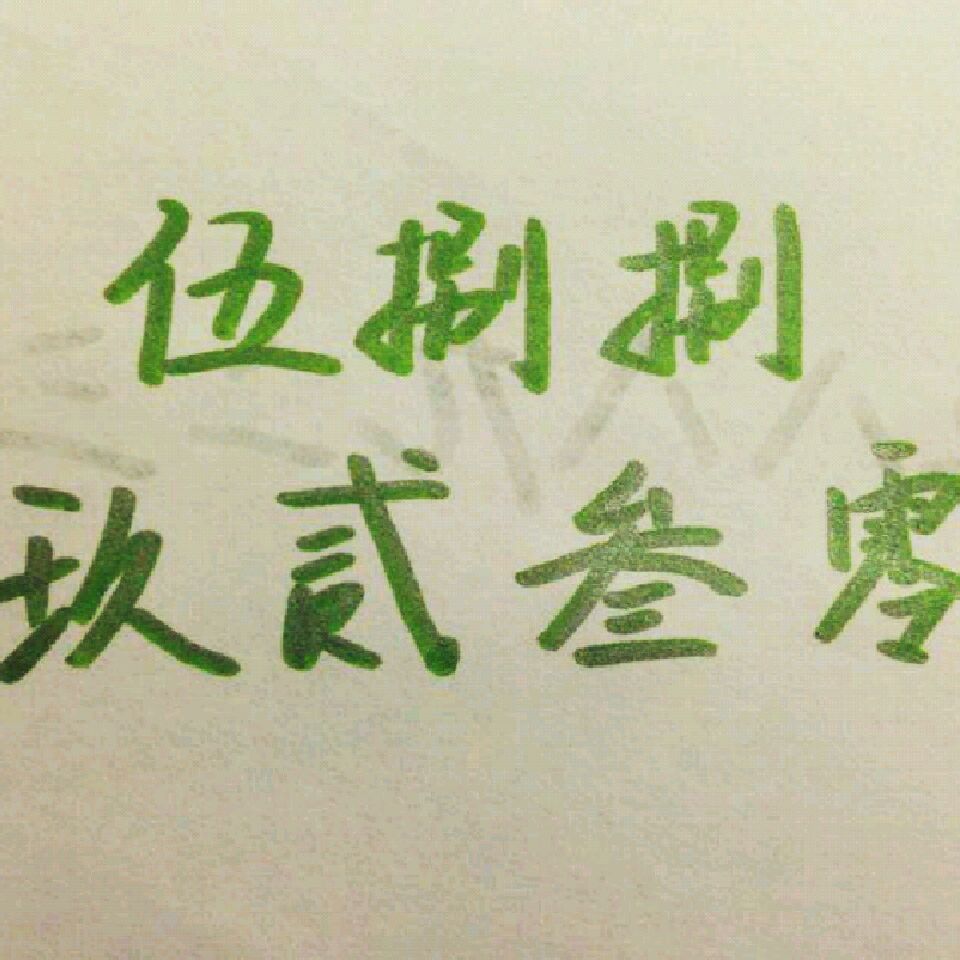 伍捌捌
玖贰叁零